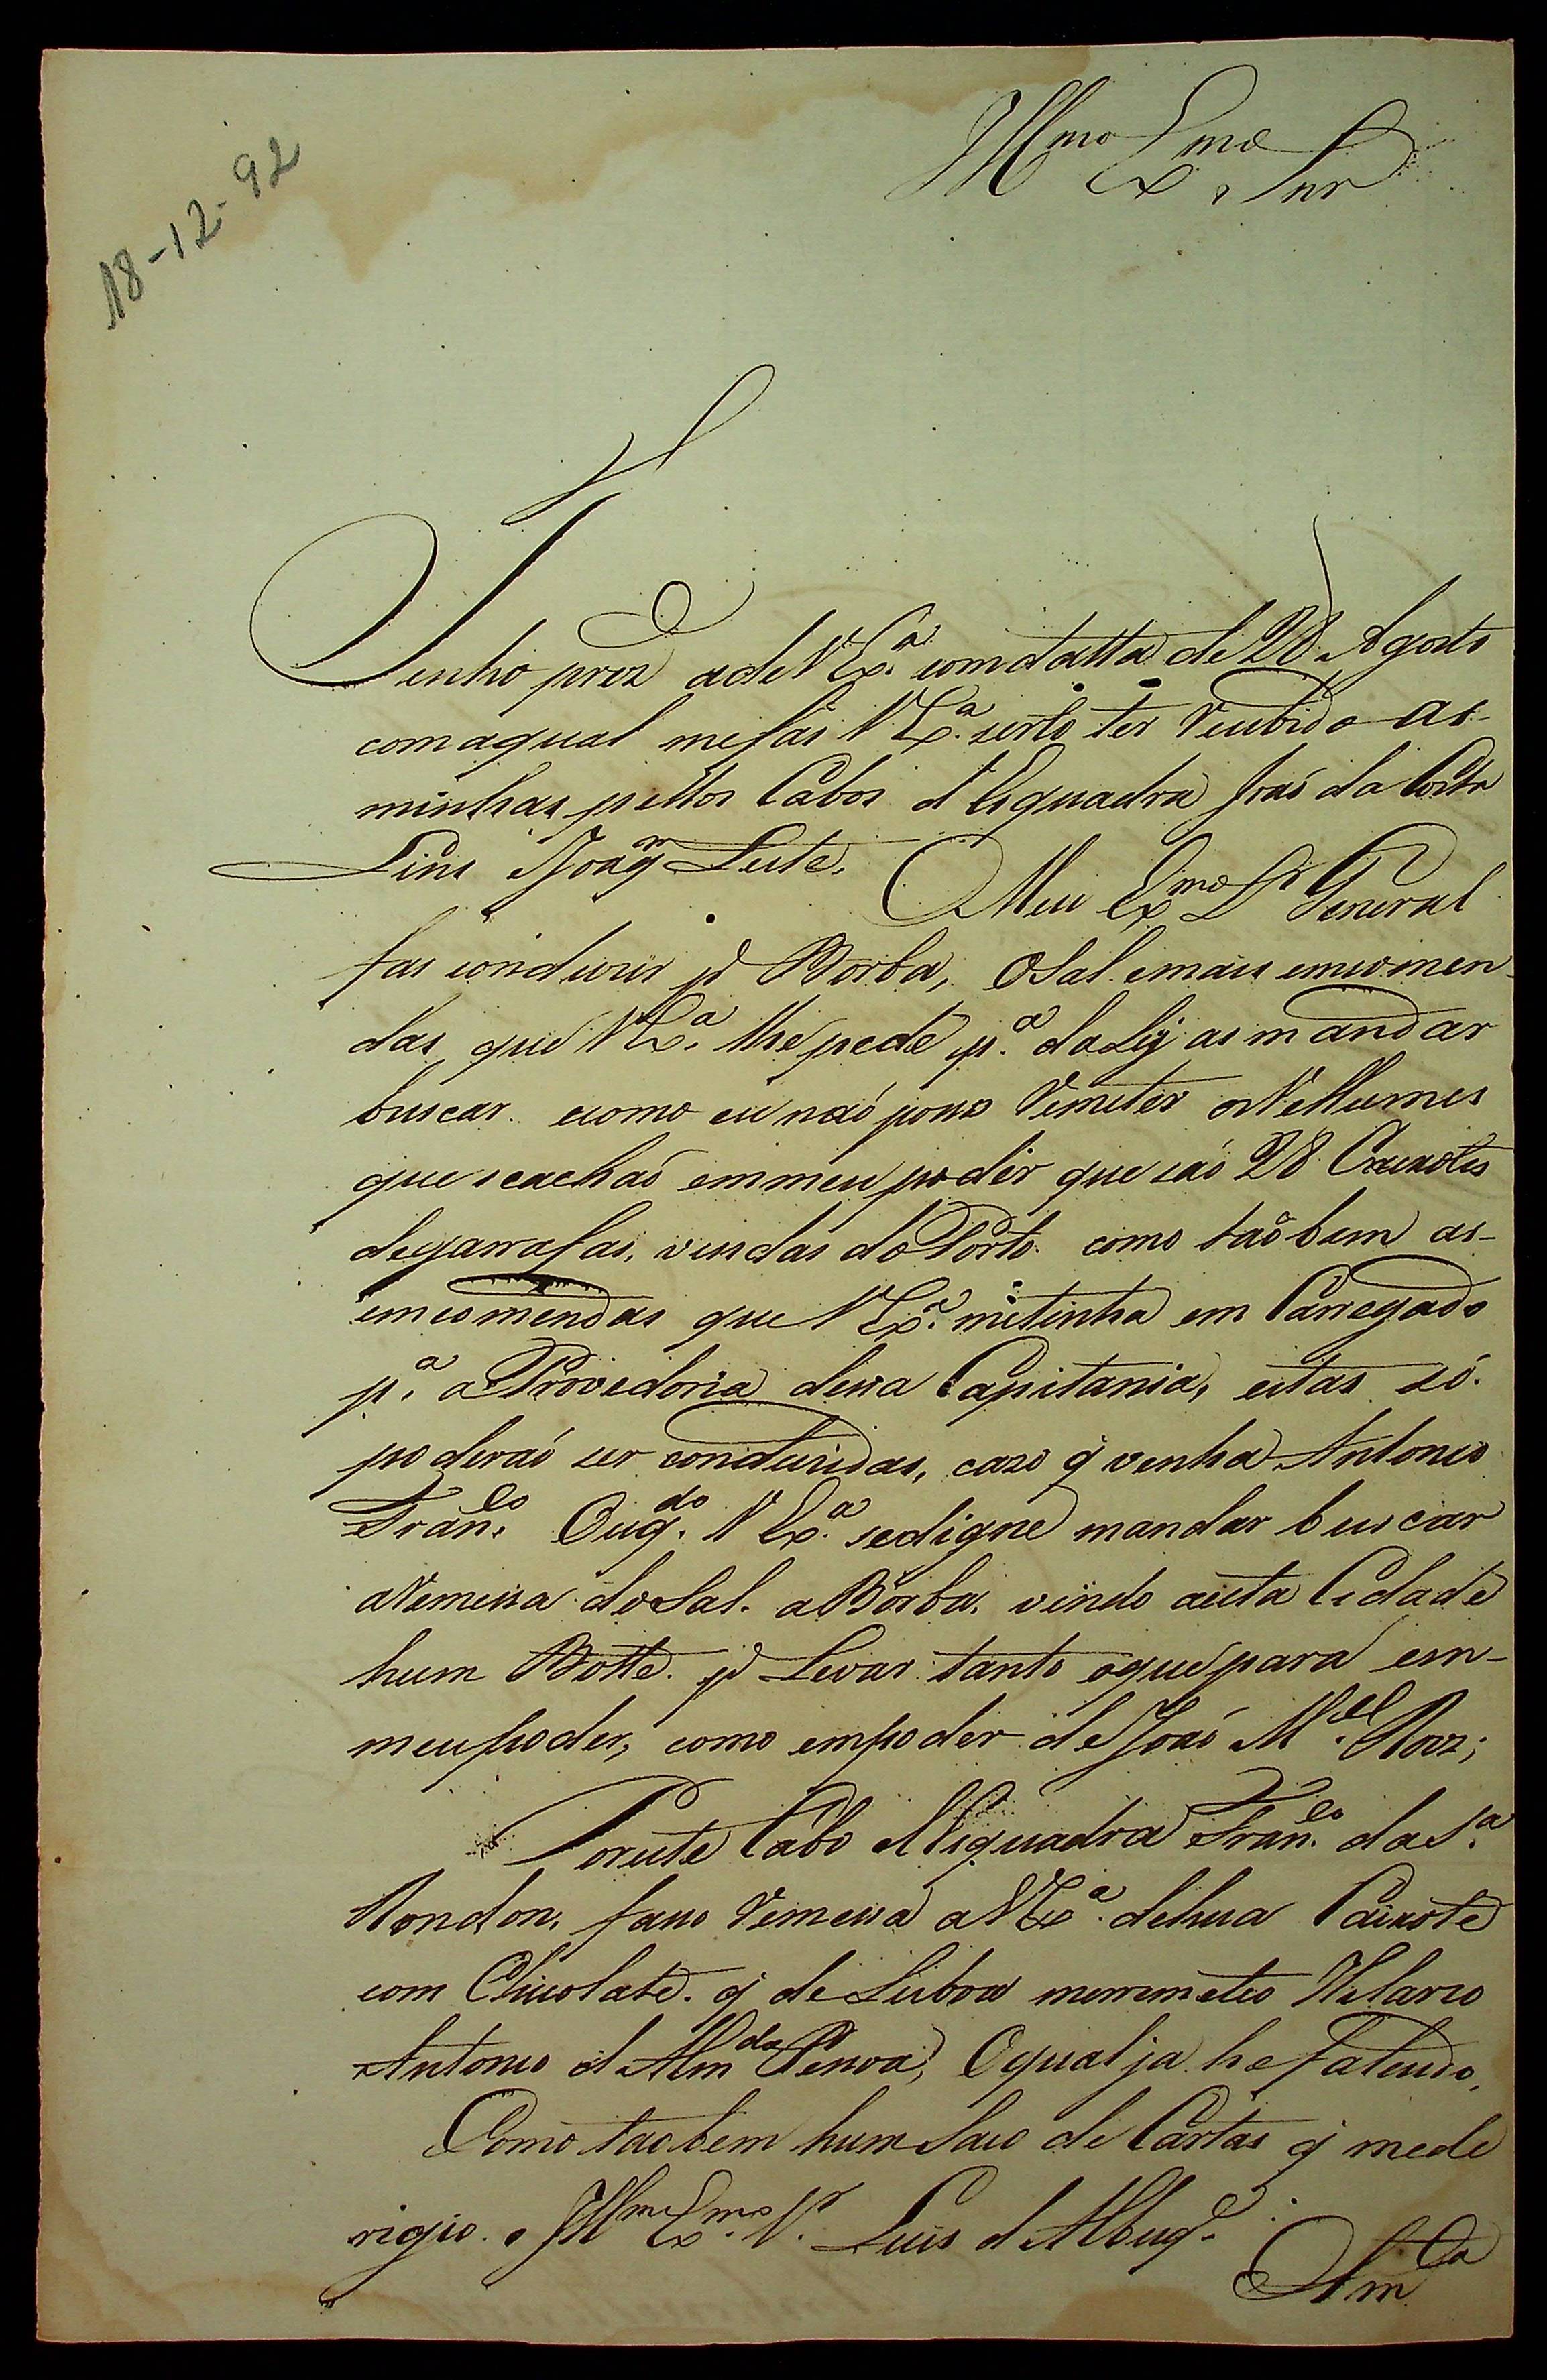 18-12-92
Illmo Exmo Snr
Tenho prez adeVExa. comdatta de 28 Agosto
comaqual mefas VExa. serto ter Recebido as-
minhas pellos Cabos dEsquadra Joaó da Costa
Lins eJoaqm Leite. Meu Exmo Sr General
fas conduzir pa Borba, Osal emais emcomen-
das que VExa. lhe pede pa. daly as mandar
buscar. ecomo eu naó posso Remeter osVollumes
que seachaó emmeu poder que saó 28 Caixotes
degarrafas, vindas doPorto. como taõbem as-
emcomendas que VExa. metinha em Carregado
pa. aProvedoria dessa Capitania, estas só.
poderaó ser conduzidas, cazo q̃ venha Antonio
Franco. Ou qdo. VExa. sedigne mandar buscar
aRemessa doSal. aBorba. vindo aésta Cidade
hum Botte. pa Levar tanto oquepara em-
meupoder, como empoder deJoaó Mel. Roiz;
Poreste Cabo dEsquadra Franco. daSa.
Rondon, fasso Remessa aVExa. dehua Caixote
com Chicolate. q̃ de Lisboa meremeteo Hilario
Antonio dAlmda Pessoa, Oqual ja hefalecido,
Como taobem hum Saco de Cartas q̃ mede
rigio. o Illm Exmo. Sr. Luis dAlbuqe.
Ama